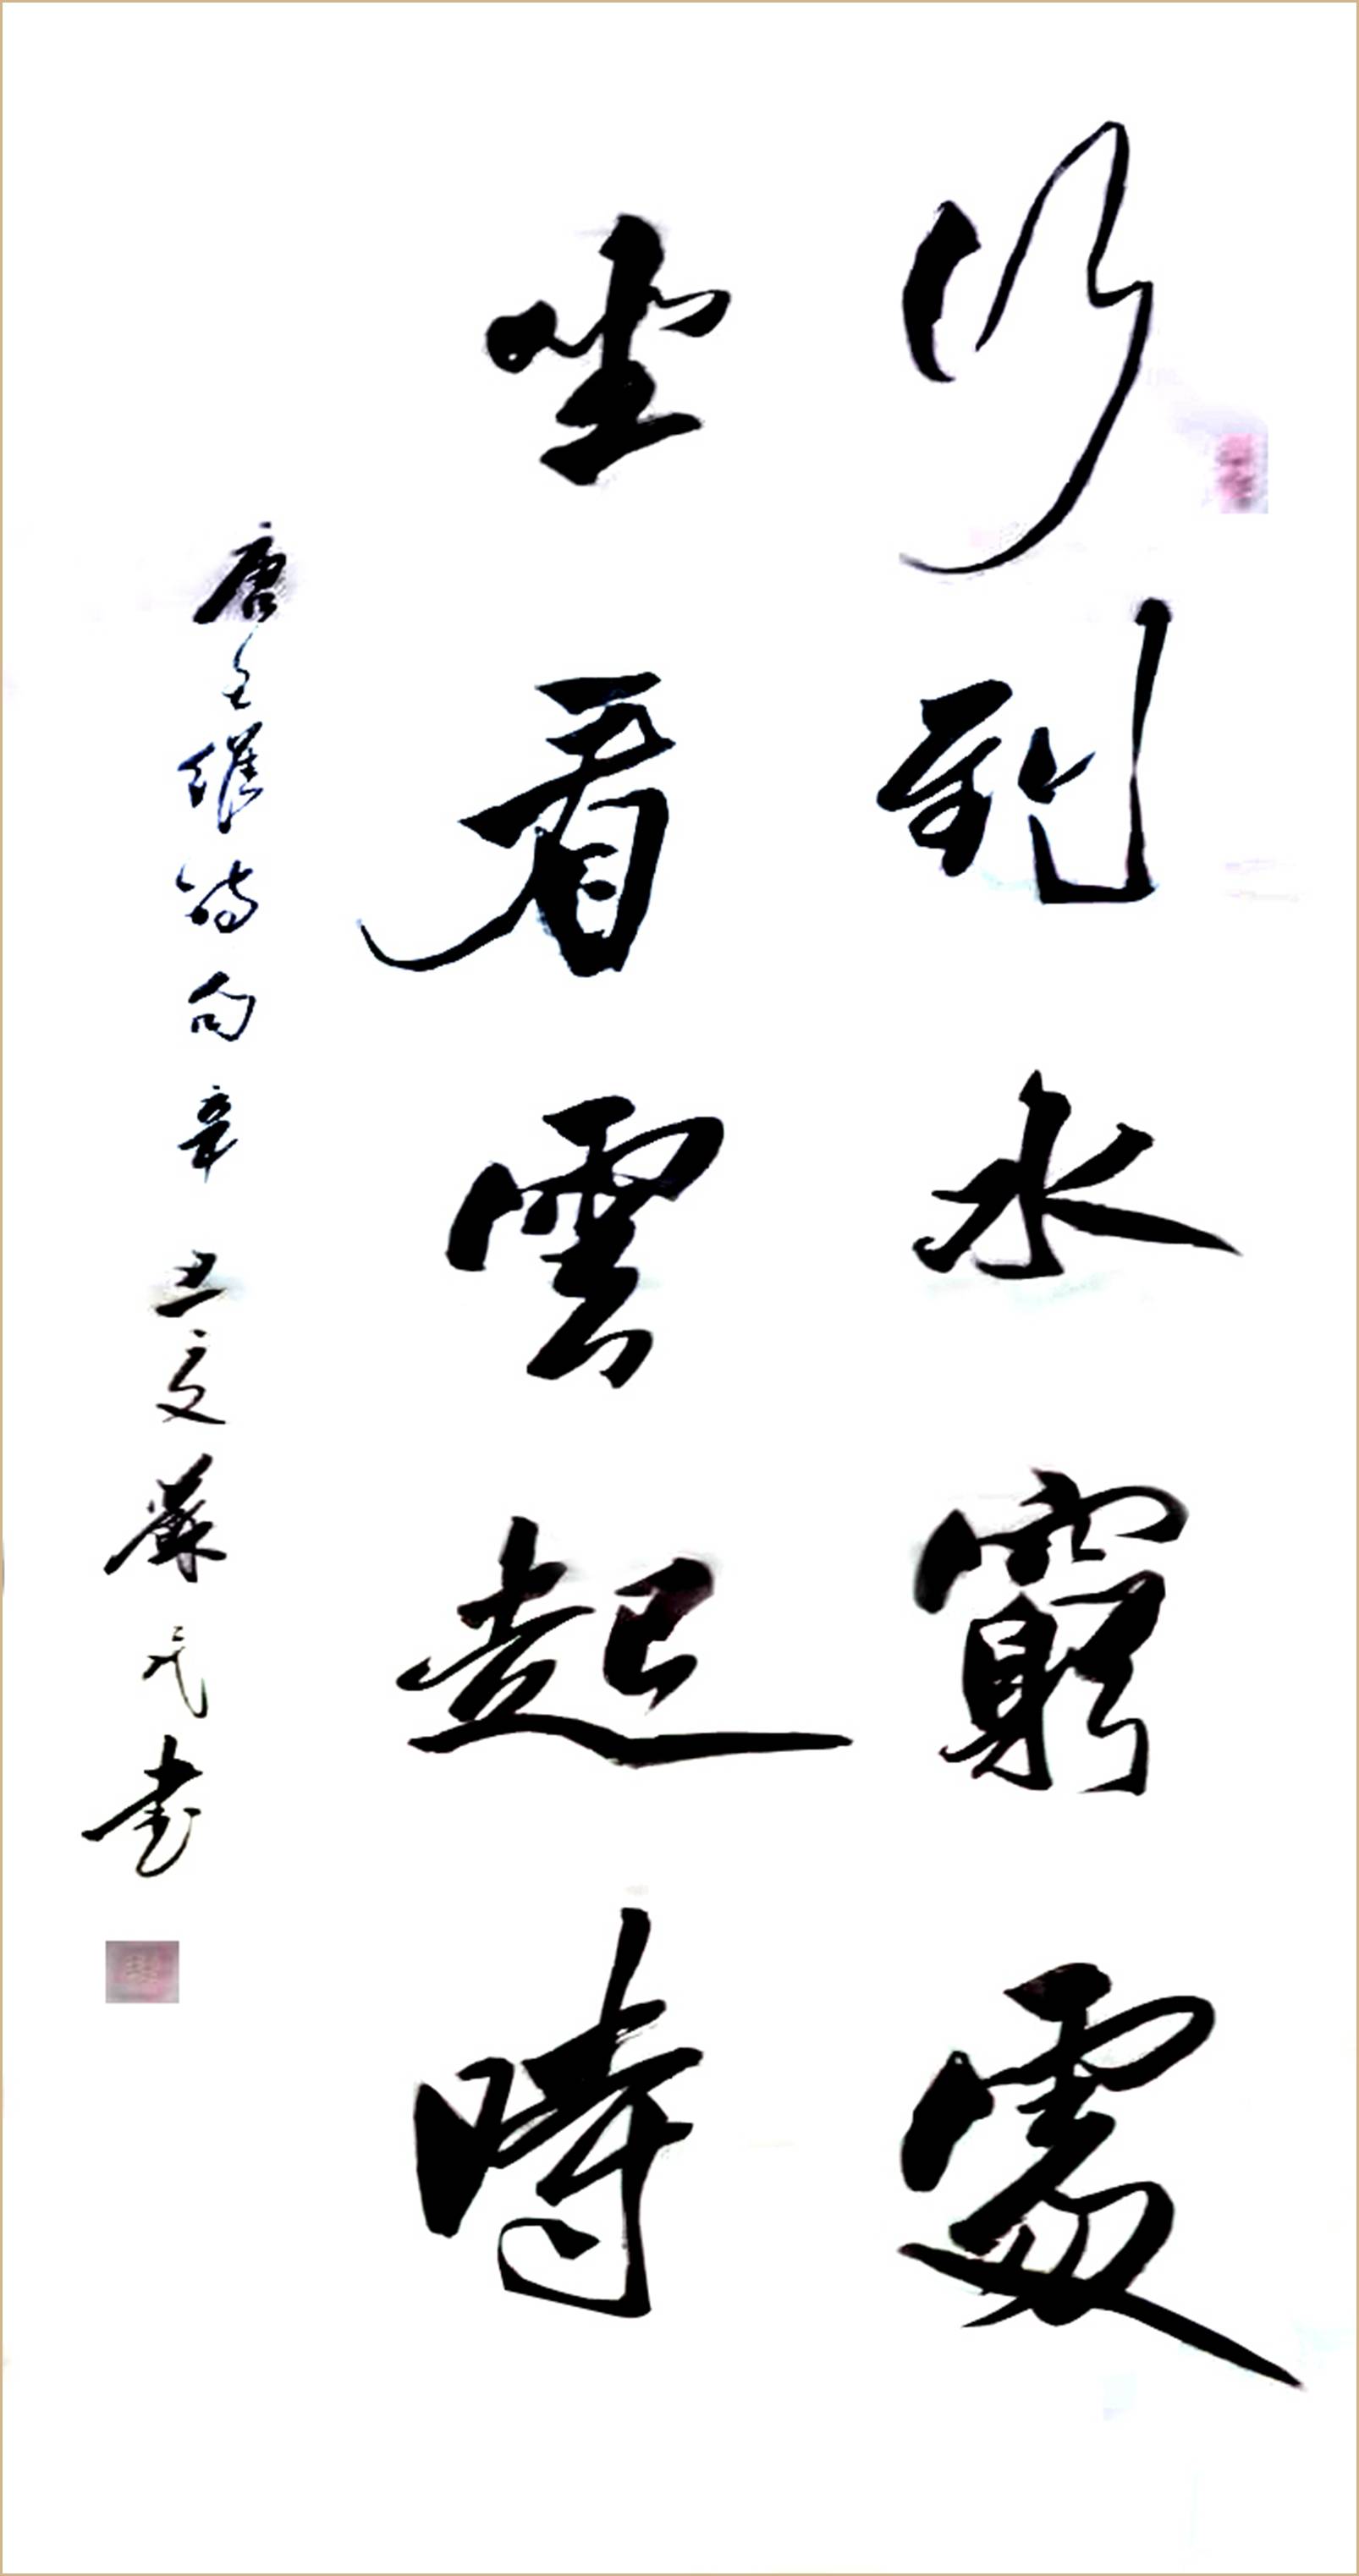 行到水窮處
坐看雲起時
唐王維詩句辛丑夏蘇民書